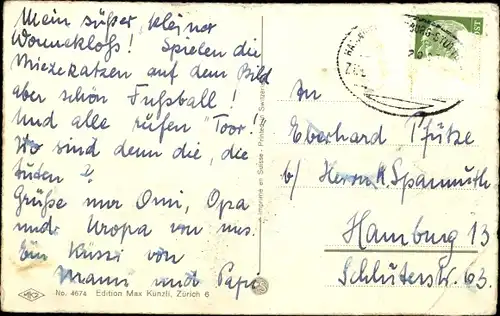 Mein süßer, kleiner
Wonnekloß! Spielen die
Miezekatzen auf dem Bild
aber schön Fußball!
Und alle rufen "Toor"!
Wo sind denn die, die
tuten?
Grüße nur Omi, Opa
und Uropa von uns.
Ein Küssi von
Mami und Papi
An
Eberhard Pfütze
b/ Herrn K. Spannuth
Hamburg 13
Schlüterstr. 63.
Imprimé en Suisse - Printed in Switzerland
No. 4674 Edition Max Künzli, Zürich 6